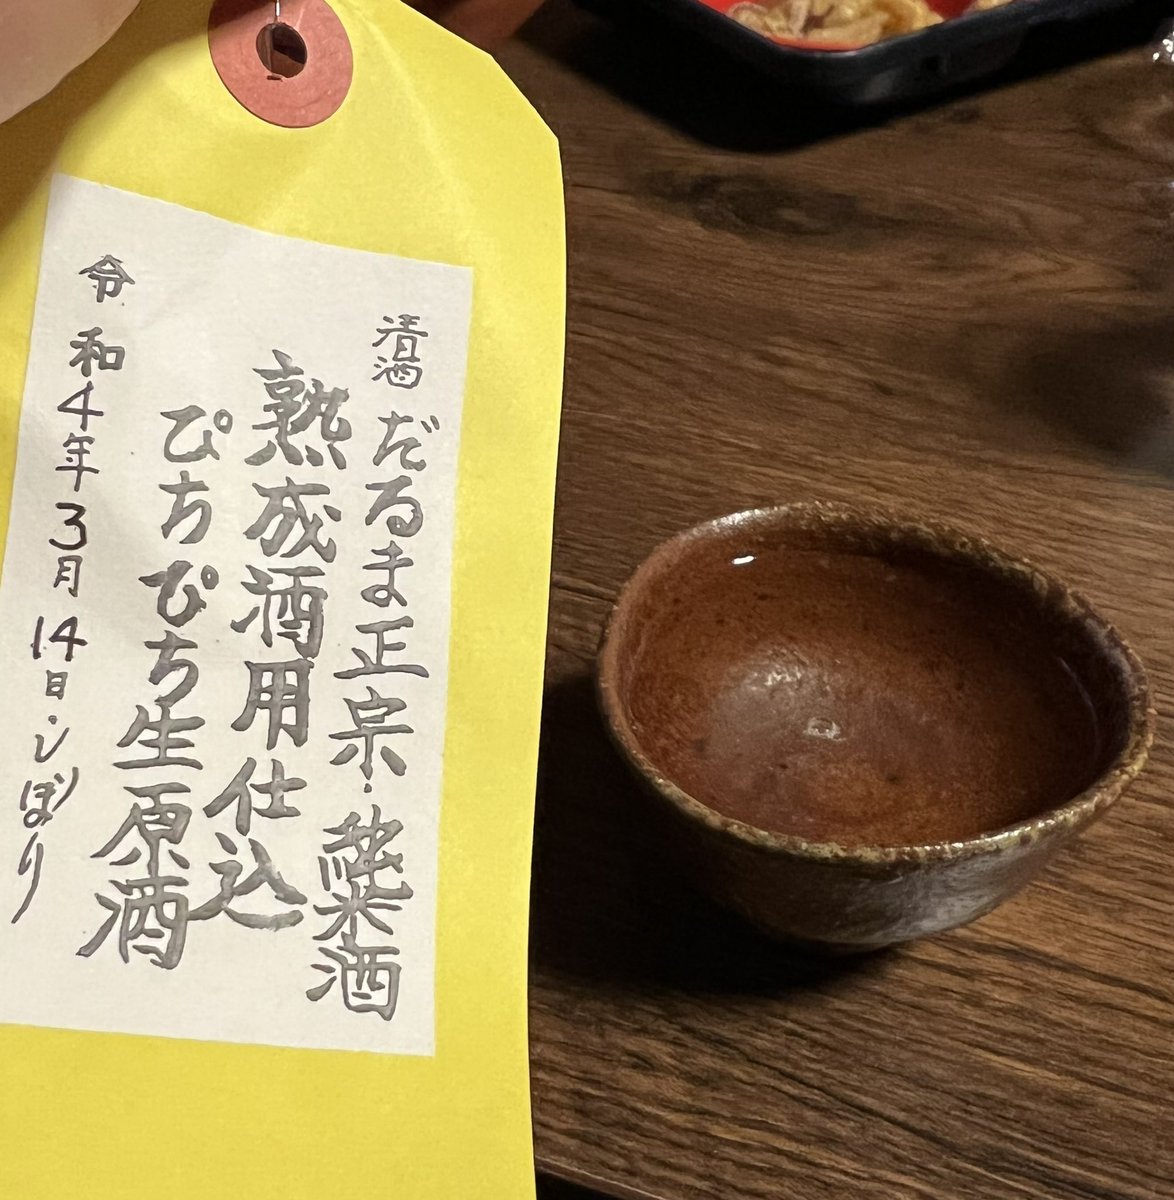 清酒 だるま正宗・純米酒
熟成酒用仕込
ぴちぴち生原酒
令和4年3月14日・しぼり